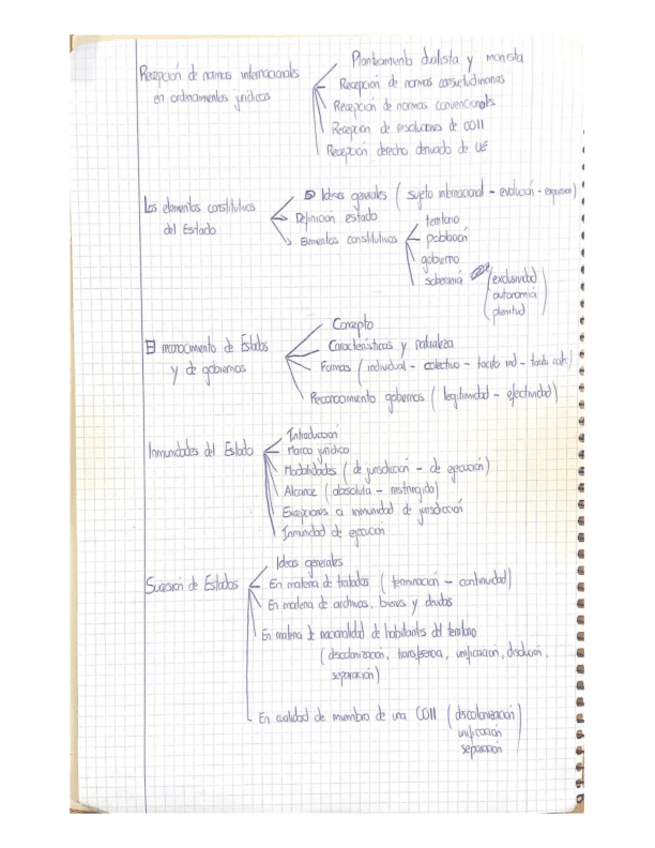 Recepción de normas internacionales
en ordenamientos jurídicos
Planteamiento dualista y monista
Recepción de normas consuetudinarias
Recepción de normas convencionales
Recepción de resoluciones de OOII
Recepción derecho derivado de UE
Los elementos constitutivos
del Estado
Ideas generales ( sujeto internacional - evolución - expansión )
Definición estado
Elementos constitutivos
territorio
población
gobierno
soberanía
( exclusividad
autonomía
plenitud )
El reconocimiento de Estados
y de gobiernos
Concepto
Características y naturaleza
Formas ( individual - colectivo - tácito ind - tácito colc )
Reconocimiento gobiernos ( legitimidad - efectividad )
Inmunidades del Estado
Introducción
Marco jurídico
Modalidades ( de jurisdicción - de ejecución )
Alcance ( absoluta - restringido )
Excepciones a inmunidad de jurisdicción
Inmunidad de ejecución
Sucesión de Estados
Ideas generales
En materia de tratados ( terminación - continuidad )
En materia de archivos, bienes y deudas
En materia de nacionalidad de habitantes del territorio
( discolonización, transferencia, unificación, disolución,
separación )
En calidad de miembro de una OOII ( discolonización
unificación
separación )